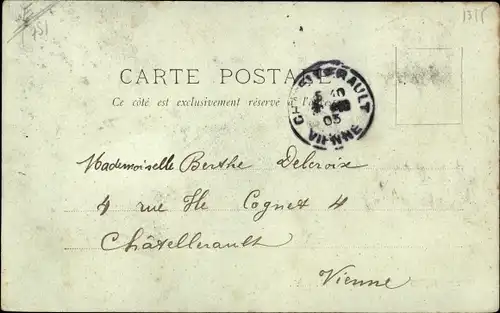 CARTE POSTALE
Ce côté est exclusivement réservé à l'adresse
CHATELLERAULT
5 40
03
VIENNE
Mademoiselle Berthe Delcroix
4 rue He Cognet 4
Châtellerault
Vienne